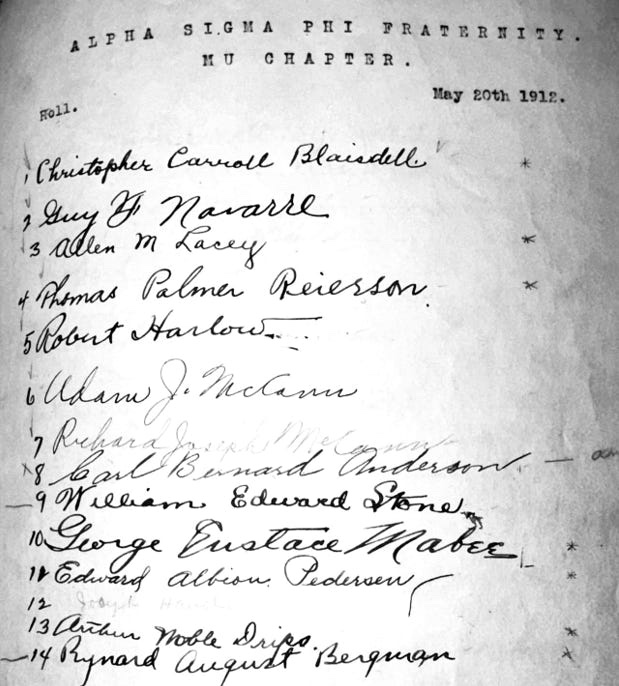 ALPHA SIGMA PHI FRATERNITY.
MU CHAPTER.
May 20th 1912.
Roll.
1 Christopher Carroll Blaisdell *
2 Guy F Navarre
3 Allen M Lacey *
4 Thomas Palmer Reierson *
5 Robert Harlow
6 Adam J. McCann
7 Richard Joseph McCann
x 8 Carl Bernard Anderson —
— 9 William Edward Stone
10 George Eustace Mabee *
11 Edward Albion Pedersen *
12 Joseph
13 Arthur Noble Drips. *
— 14 Rynard August Bergman *